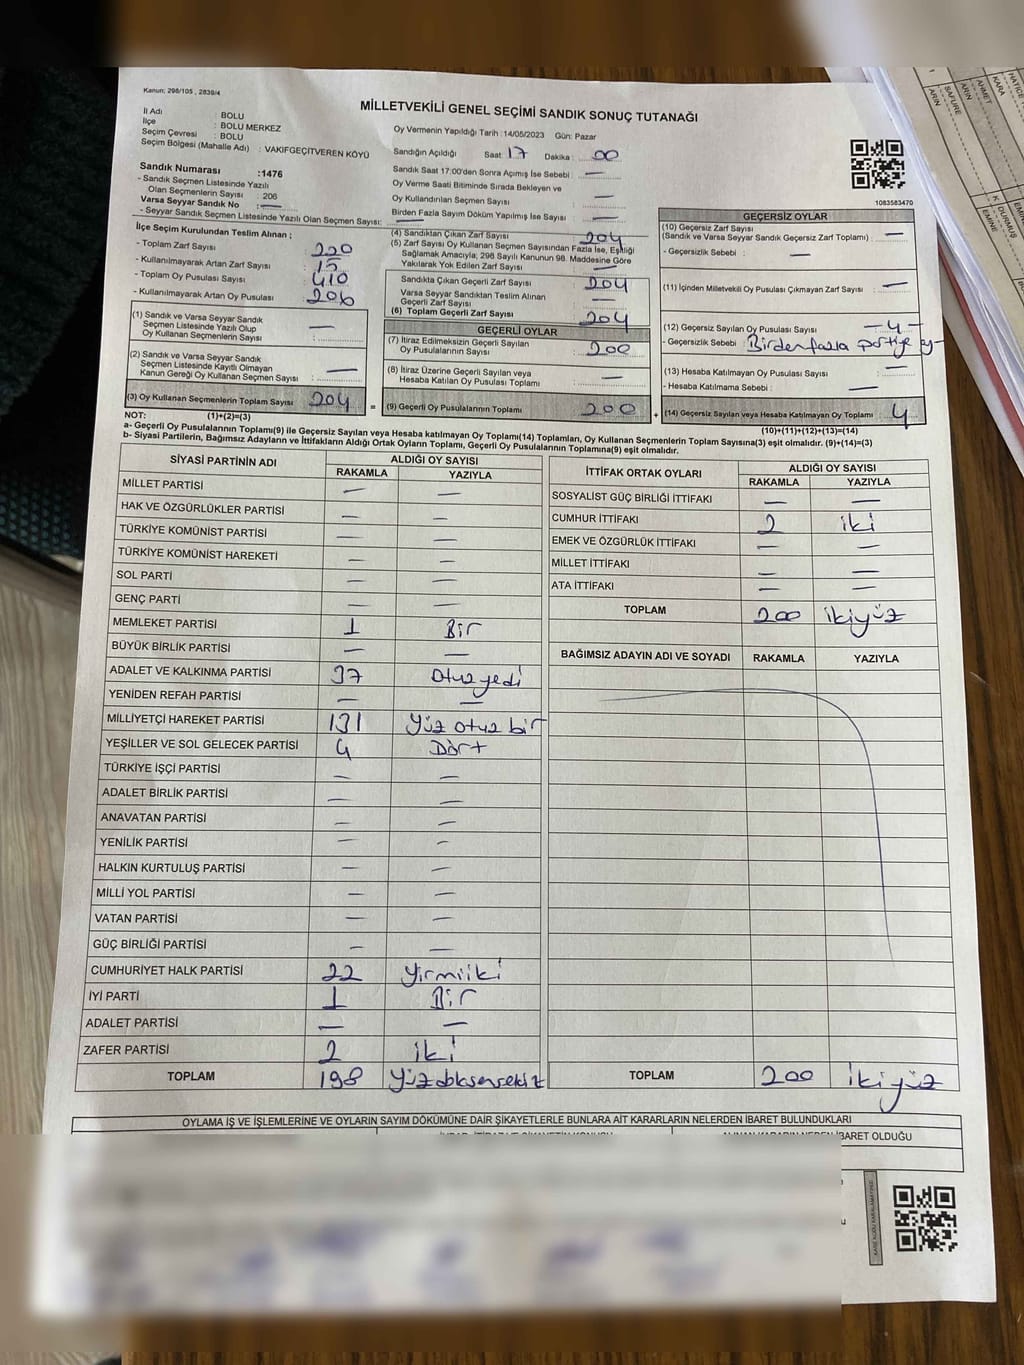 Kanun: 298/105 , 2839/4
MİLLETVEKİLİ GENEL SEÇİMİ SANDIK SONUÇ TUTANAĞI
İl Adı : BOLU
İlçe : BOLU MERKEZ
Seçim Çevresi : BOLU
Seçim Bölgesi (Mahalle Adı) : VAKIFGEÇİTVEREN KÖYÜ
Oy Vermenin Yapıldığı Tarih : 14/05/2023 Gün: Pazar
Sandığın Açıldığı Saat : 17 Dakika : 00
Sandık Saat 17:00'den Sonra Açımış İse Sebebi : —
Oy Verme Saati Bitiminde Sırada Bekleyen ve
Oy Kullandırılan Seçmen Sayısı : —
Birden Fazla Sayım Döküm Yapılmış İse Sayısı : —
Sandık Numarası :1476
- Sandık Seçmen Listesinde Yazılı
Olan Seçmenlerin Sayısı : 206
Varsa Seyyar Sandık No : —
- Seyyar Sandık Seçmen Listesinde Yazılı Olan Seçmen Sayısı: —
1083583470
İlçe Seçim Kurulundan Teslim Alınan ;
- Toplam Zarf Sayısı : 220
- Kullanılmayarak Artan Zarf Sayısı : 15
- Toplam Oy Pusulası Sayısı : 410
- Kullanılmayarak Artan Oy Pusulası : 206
(1) Sandık ve Varsa Seyyar Sandık
Seçmen Listesinde Yazılı Olup
Oy Kullanan Seçmenlerin Sayısı : —
(2) Sandık ve Varsa Seyyar Sandık
Seçmen Listesinde Kayıtlı Olmayan
Kanun Gereği Oy Kullanan Seçmen Sayısı : —
(3) Oy Kullanan Seçmenlerin Toplam Sayısı : 204
(4) Sandıktan Çıkan Zarf Sayısı : 204
(5) Zarf Sayısı Oy Kullanan Seçmen Sayısından Fazla İse, Eşitliği
Sağlamak Amacıyla; 298 Sayılı Kanunun 98. Maddesine Göre
Yakılarak Yok Edilen Zarf Sayısı : —
Sandıkta Çıkan Geçerli Zarf Sayısı : 204
Varsa Seyyar Sandıktan Teslim Alınan
Geçerli Zarf Sayısı : —
(6) Toplam Geçerli Zarf Sayısı : 204
GEÇERLİ OYLAR
(7) İtiraz Edilmeksizin Geçerli Sayılan
Oy Pusulalarının Sayısı : 200
(8) İtiraz Üzerine Geçerli Sayılan veya
Hesaba Katılan Oy Pusulası Toplamı : —
= (9) Geçerli Oy Pusulalarının Toplamı : 200 +
GEÇERSİZ OYLAR
(10) Geçersiz Zarf Sayısı
(Sandık ve Varsa Seyyar Sandık Geçersiz Zarf Toplamı) : —
- Geçersizlik Sebebi : —
(11) İçinden Milletvekili Oy Pusulası Çıkmayan Zarf Sayısı : —
(12) Geçersiz Sayılan Oy Pusulası Sayısı : – 4 –
- Geçersizlik Sebebi : Birden fazla partiye oy-
(13) Hesaba Katılmayan Oy Pusulası Sayısı : —
- Hesaba Katılmama Sebebi : —
(14) Geçersiz Sayılan veya Hesaba Katılmayan Oy Toplamı : 4
NOT: (1)+(2)=(3) (10)+(11)+(12)+(13)=(14)
a- Geçerli Oy Pusulalarının Toplamı(9) ile Geçersiz Sayılan veya Hesaba katılmayan Oy Toplamı(14) Toplamları, Oy Kullanan Seçmenlerin Toplam Sayısına(3) eşit olmalıdır. (9)+(14)=(3)
b- Siyasi Partilerin, Bağımsız Adayların ve İttifakların Aldığı Ortak Oyların Toplamı, Geçerli Oy Pusulalarının Toplamına(9) eşit olmalıdır.
SİYASİ PARTİNİN ADI ALDIĞI OY SAYISI
RAKAMLA YAZIYLA
MİLLET PARTİSİ — —
HAK VE ÖZGÜRLÜKLER PARTİSİ — —
TÜRKİYE KOMÜNİST PARTİSİ — —
TÜRKİYE KOMÜNİST HAREKETİ — —
SOL PARTİ — —
GENÇ PARTİ — —
MEMLEKET PARTİSİ 1 Bir
BÜYÜK BİRLİK PARTİSİ — —
ADALET VE KALKINMA PARTİSİ 37 Otuz yedi
YENİDEN REFAH PARTİSİ — —
MİLLİYETÇİ HAREKET PARTİSİ 131 Yüz otuz bir
YEŞİLLER VE SOL GELECEK PARTİSİ 4 Dört
TÜRKİYE İŞÇİ PARTİSİ — —
ADALET BİRLİK PARTİSİ — —
ANAVATAN PARTİSİ — —
YENİLİK PARTİSİ — —
HALKIN KURTULUŞ PARTİSİ — —
MİLLİ YOL PARTİSİ — —
VATAN PARTİSİ — —
GÜÇ BİRLİĞİ PARTİSİ — —
CUMHURİYET HALK PARTİSİ 22 Yirmiiki
İYİ PARTİ 1 Bir
ADALET PARTİSİ — —
ZAFER PARTİSİ 2 iki
TOPLAM 198 Yüzdoksansekiz
İTTİFAK ORTAK OYLARI ALDIĞI OY SAYISI
RAKAMLA YAZIYLA
SOSYALİST GÜÇ BİRLİĞİ İTTİFAKI — —
CUMHUR İTTİFAKI 2 iki
EMEK VE ÖZGÜRLÜK İTTİFAKI — —
MİLLET İTTİFAKI — —
ATA İTTİFAKI — —
TOPLAM 200 ikiyüz
BAĞIMSIZ ADAYIN ADI VE SOYADI RAKAMLA YAZIYLA
TOPLAM 200 ikiyüz
OYLAMA İŞ VE İŞLEMLERİNE VE OYLARIN SAYIM DÖKÜMÜNE DAİR ŞİKAYETLERLE BUNLARA AİT KARARLARIN NELERDEN İBARET BULUNDUKLARI
İBARET OLDUĞU